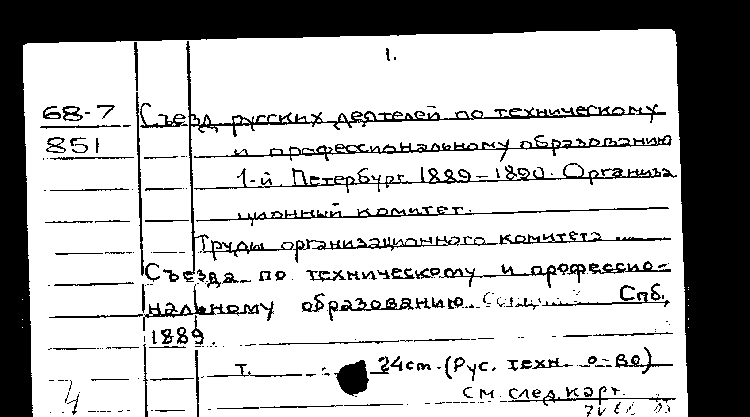 1.
68-7 Съезд русских деятелей по техническому
851 и профессиональному образованию
1-й. Петербург. 1889-1890. Организа
ционный комитет.
Труды организационного комитета .....
Съезда по техническому и профессио-
нальному образованию. Спб,
1889.
т. 24cm. (Рус. техн. о-во)
См. след. карт.